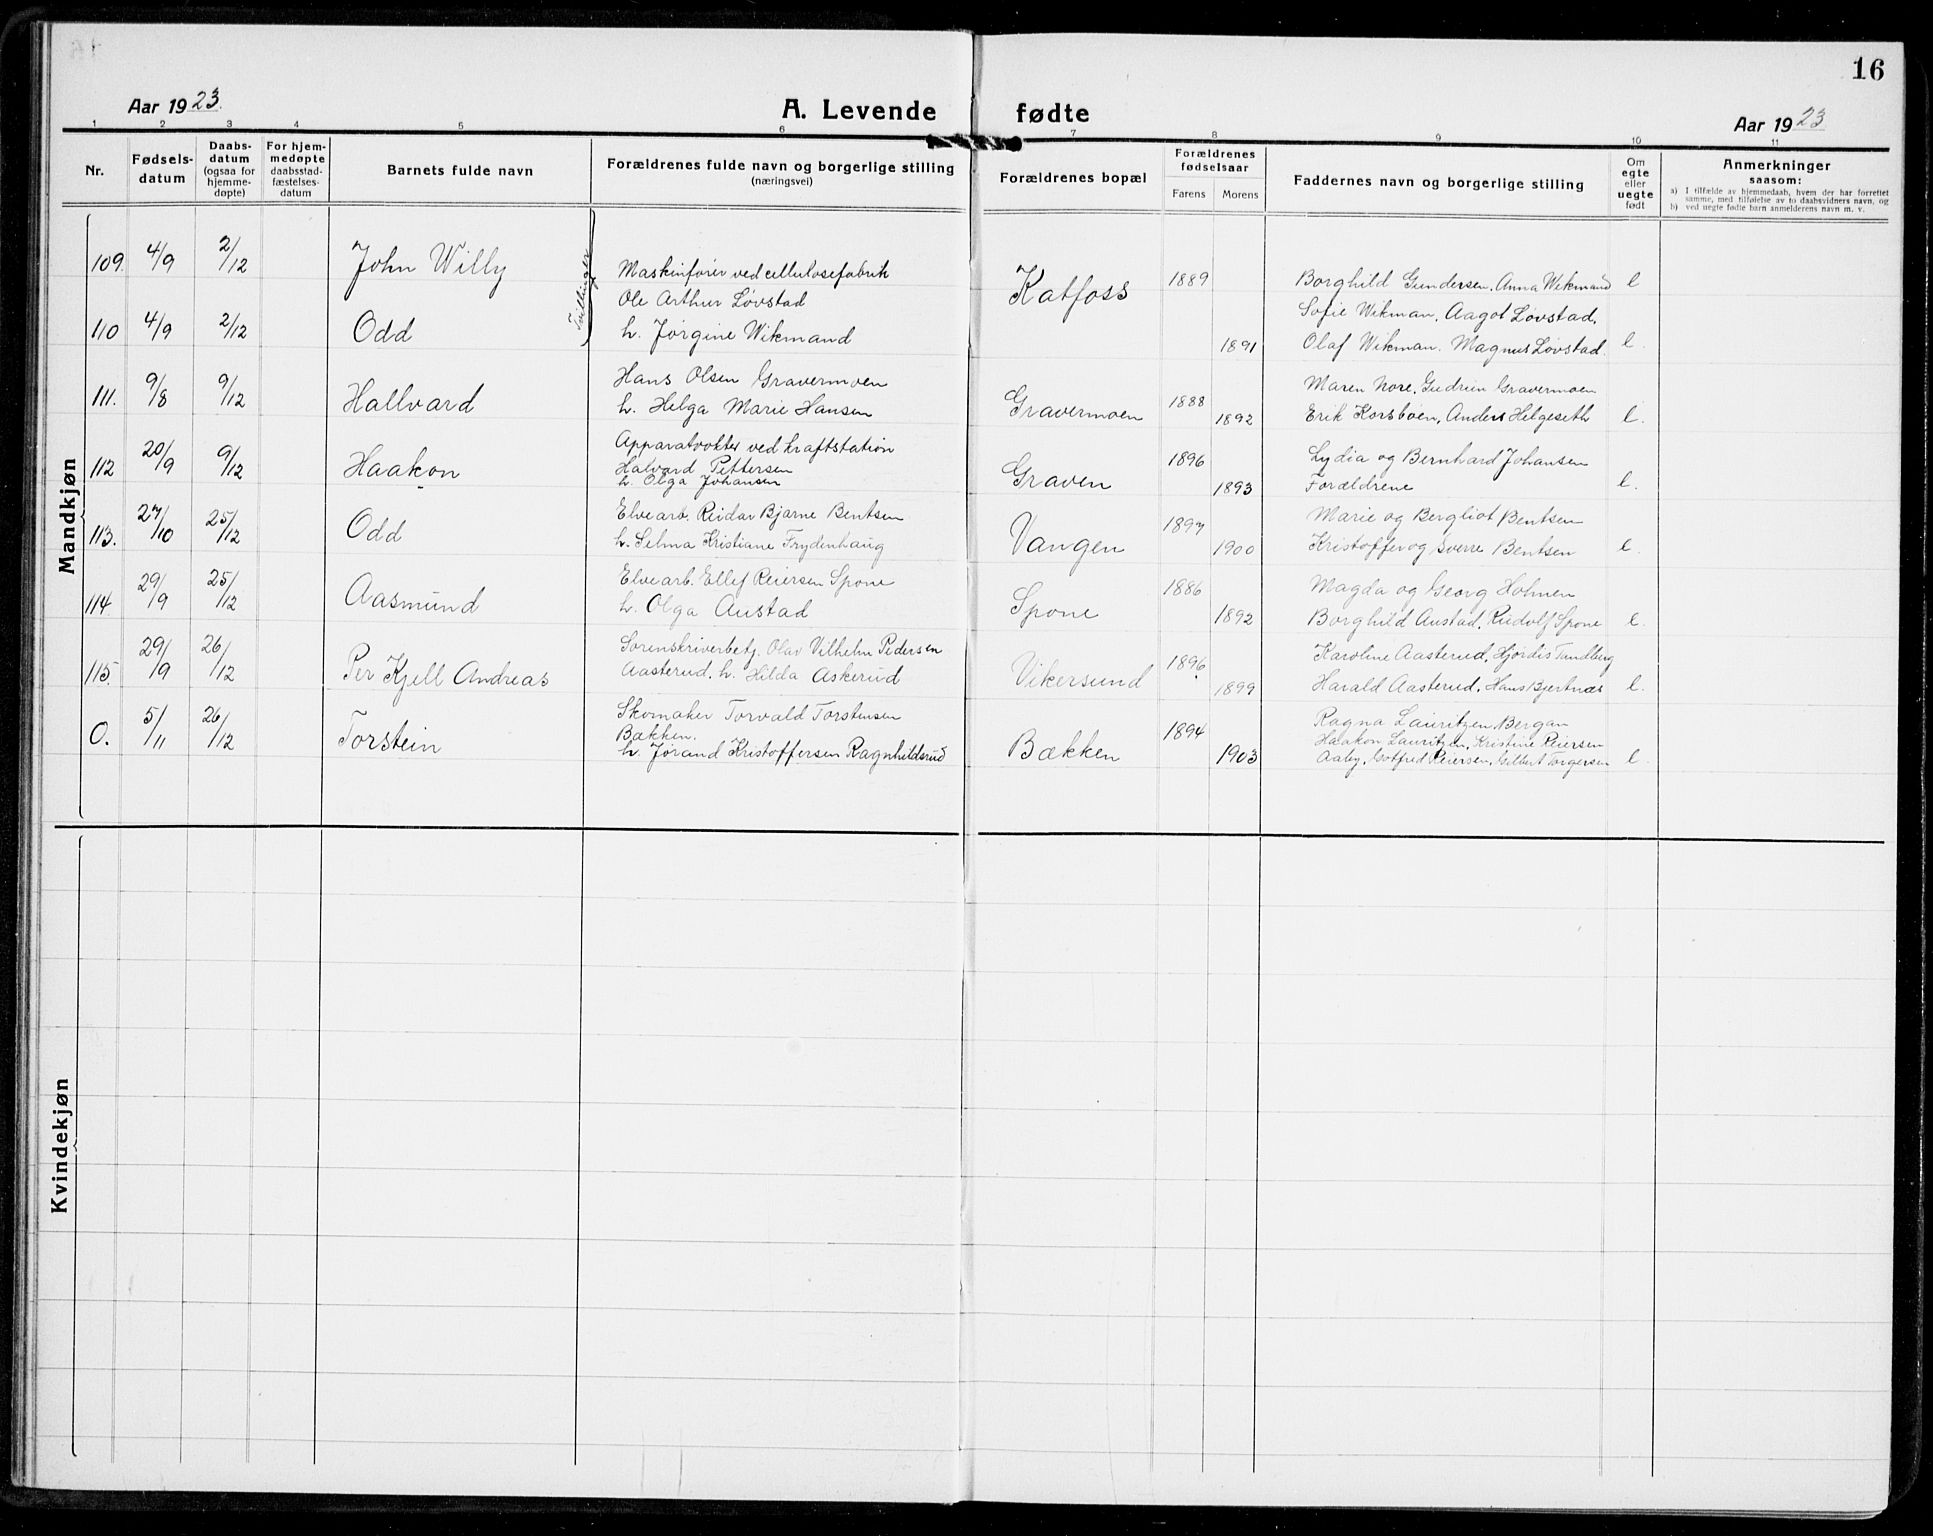 16
Aar 1923.
A. Levende fødte
Aar 1923
1 2 3 4 5 6 7 8 9 10 11
Nr.
Fødsels-
datum
Daabs-
datum
(ogsaa for
hjemme-
døpte)
For hjem-
medøpte
daabsstad-
fæstelses-
datum
Barnets fulde navn
Forældrenes fulde navn og borgerlige stilling
(næringsvei)
Forældrenes bopæl
Forældrenes
fødselsaar
Farens Morens
Faddernes navn og borgerlige stilling
Om
egte
eller
uegte
født
Anmerkninger
saasom:
a) I tilfælde av hjemmedaab, hvem der har forrettet
samme, med tilføielse av to daabsvidners navn, og
b) ved uegte fødte barn anmelderens navn m. v.
Mandkjøn
109. 4/9 2/12 John Willy
Tvillinger
Maskinfører ved cellulosefabrik
Ole Arthur Løvstad
Katfoss 1889
Borghild Gundersen, Anna Wikmand e
Sofie Wikman, Aagot Løvstad,
110 4/9 2/12 Odd
h. Jørgine Wikmand
1891
Olaf Wikman. Magnus Løvstad. e.
111. 9/8 9/12 Hallvard
Hans Olsen Gravermoen
h. Helga Marie Hansen
Gravermoen 1888 1892
Maren Nore, Gudrun Gravermoen
Erik Korsboen, Anders Helgeseth e.
112 20/9 9/12 Haakon
Apparatvokter ved kraftstation
Halvard Pettersen
h. Olga Johansen
Graven 1896 1893
Lydia og Bernhard Johansen
Forældrene e.
113. 27/10 25/12 Odd
Elvearb. Reidar Bjarne Bentsen
h. Selma Kristiane Frydenhaug
Vangen 1897 1900
Marie og Bergliot Bentsen
Kristoffer og Sverre Bentsen e.
114. 29/9 25/12 Aasmund
Elvearb. Ellef Reiersen Spone
h. Olga Austad
Spone 1886 1892
Magda og Georg Holmen
Borghild Austad, Rudolf Spone e.
115. 29/9 26/12 Per Kjell Andreas
Sorenskriverbetj. Olav Vilhelm Pedersen
Aasterud, h. Hilda Askerud
Vikersund 1896 1899
Karoline Aasterud, Hjørdis Tandberg
Harald Aasterud, Hans Bjertnæs e.
0. 5/11 26/12 Torstein
Skomaker Torvald Torstensen
Bækken.
h. Jørand Kristoffersen Ragnhildsrud
Bækken 1894 1903
Ragna Lauritzen Bergan
Haakon Lauritzen, Kristine Reiersen
Aaby, Gotfred Reiersen, Gilbert Torgersen e.
Kvindekjøn